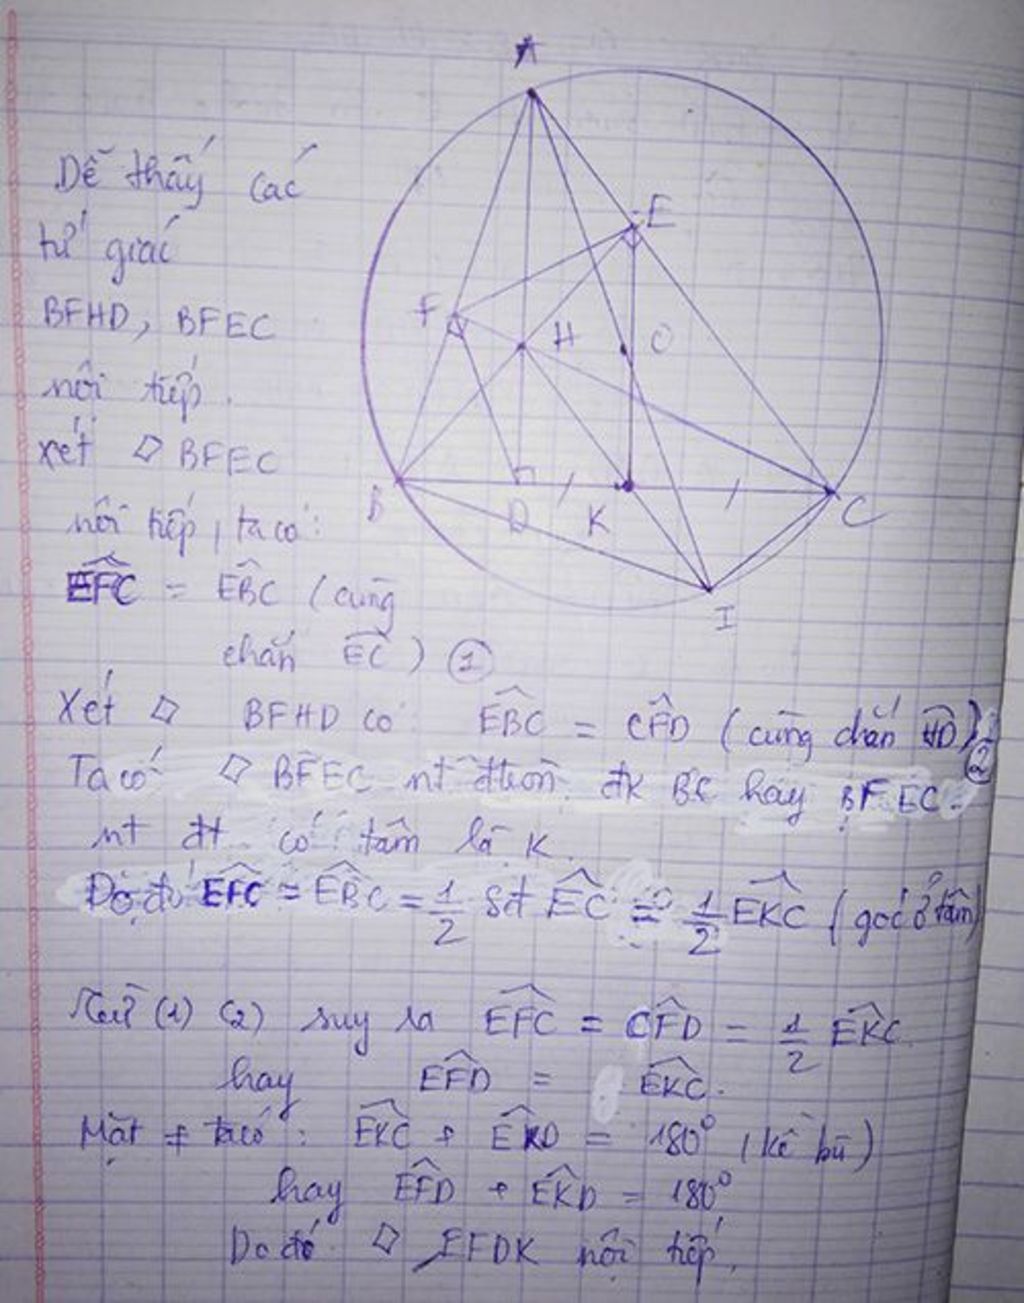 A
E
F
H
O
B
D
K
C
I
Dễ thấy các
tứ giác
BFHD, BFEC
nội tiếp.
Xét ▱ BFEC
nội tiếp, ta có:
EFC = EBC (cùng
chắn EC) ①
Xét ▱ BFHD có EBC = CFD (cùng chắn HD) ②
Ta có ▱ BFEC nt đtròn đk BC hay BFEC
nt đt có tâm là K.
Do đó EFC = EBC = 1/2 Sđ EC = 1/2 EKC (góc ở tâm)
Từ (1) (2) suy ra EFC = CFD = 1/2 EKC
hay EFD = EKC.
Mặt ≠ ta có: EKC + EKD = 180° (kề bù)
hay EFD + EKD = 180°
Do đó ▱ EFDK nội tiếp.